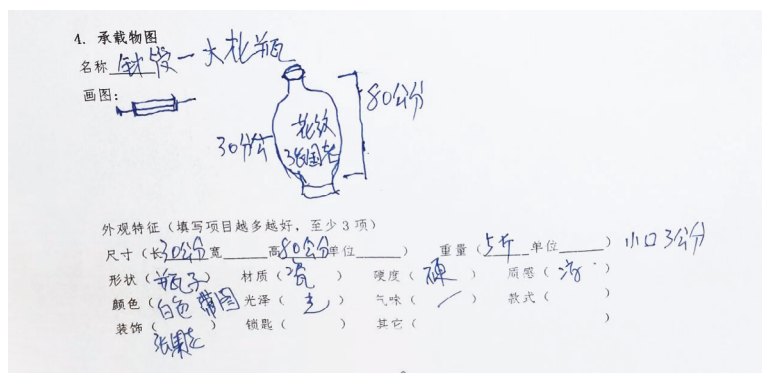 1. 承载物图
名称 针管一大花瓶
画图:
80公分
花纹
30分公
张国老
外观特征（填写项目越多越好，至少3项）
尺寸（长30公分宽______高80公分单位______） 重量（5斤 单位______）小口3公分
形状（瓶子） 材质（瓷） 硬度（硬） 质感（滑）
颜色（白色带图 光泽（光） 气味（ ） 款式（ ）
装饰（张果老） 锁匙（ ） 其它（ ）